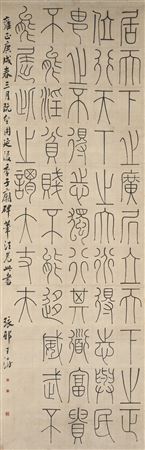 居天下之廣居立天下之正
位行天下之大道得志與民
由之不得志獨行其道富貴
不能淫貧賤不能移威武不
能屈此之謂大丈夫
雍正庚戌春三月既望用延陵季子廟碑筆法
琅邪王澍